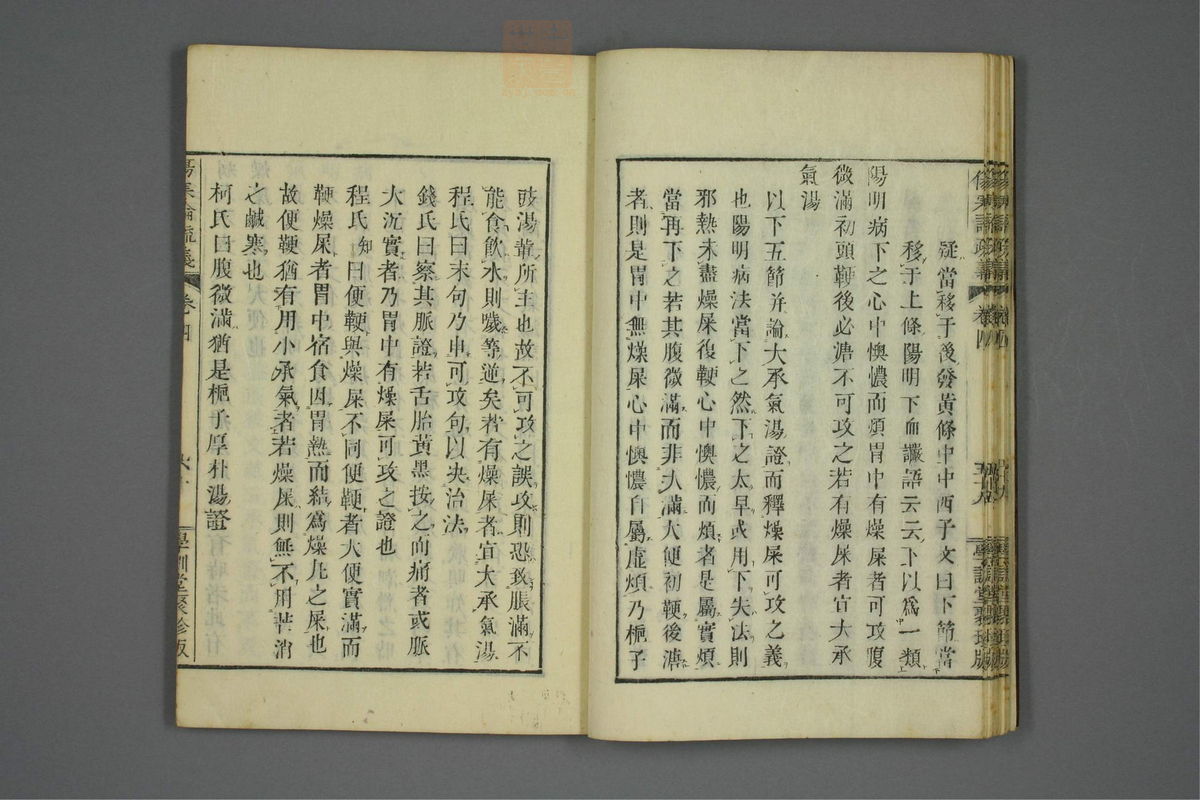 疑當移于後發黃條中中西子文曰下節當
移于上條陽明下血讝語云云下以爲一類
陽明病下之心中懊憹而煩胃中有燥屎者可攻腹
微滿初頭鞕後必溏不可攻之若有燥屎者宜大承
氣湯
以下五節并論大承氣湯證而釋燥屎可攻之義
也陽明病法當下之然下之太早或用下失法則
邪熱未盡燥屎復鞕心中懊憹而煩者是屬實煩
當再下之若其腹微滿而非大滿大便初鞕後溏
者則是胃中無燥屎心中懊憹自屬虛煩乃梔子
豉湯輩所主也故不可攻之誤攻則恐致脹滿不
能食飲水則噦等道矣若有燥屎者宜大承氣湯
程氏曰末句乃申可攻句以決治法
錢氏曰察其脈證若舌胎黃黑按之而痛者或脈
大沉實者乃胃中有燥屎可攻之證也
程氏知曰便鞕與燥屎不同便鞕者大便實滿而
鞕燥屎者胃中宿食因胃熱而結爲燥丸之屎也
故便鞕猶有用小承氣者若燥屎則無不用芒消
之鹹寒也
柯氏曰腹微滿猶是梔子厚朴湯證
傷寒論疏義 卷四
學訓堂聚珍版